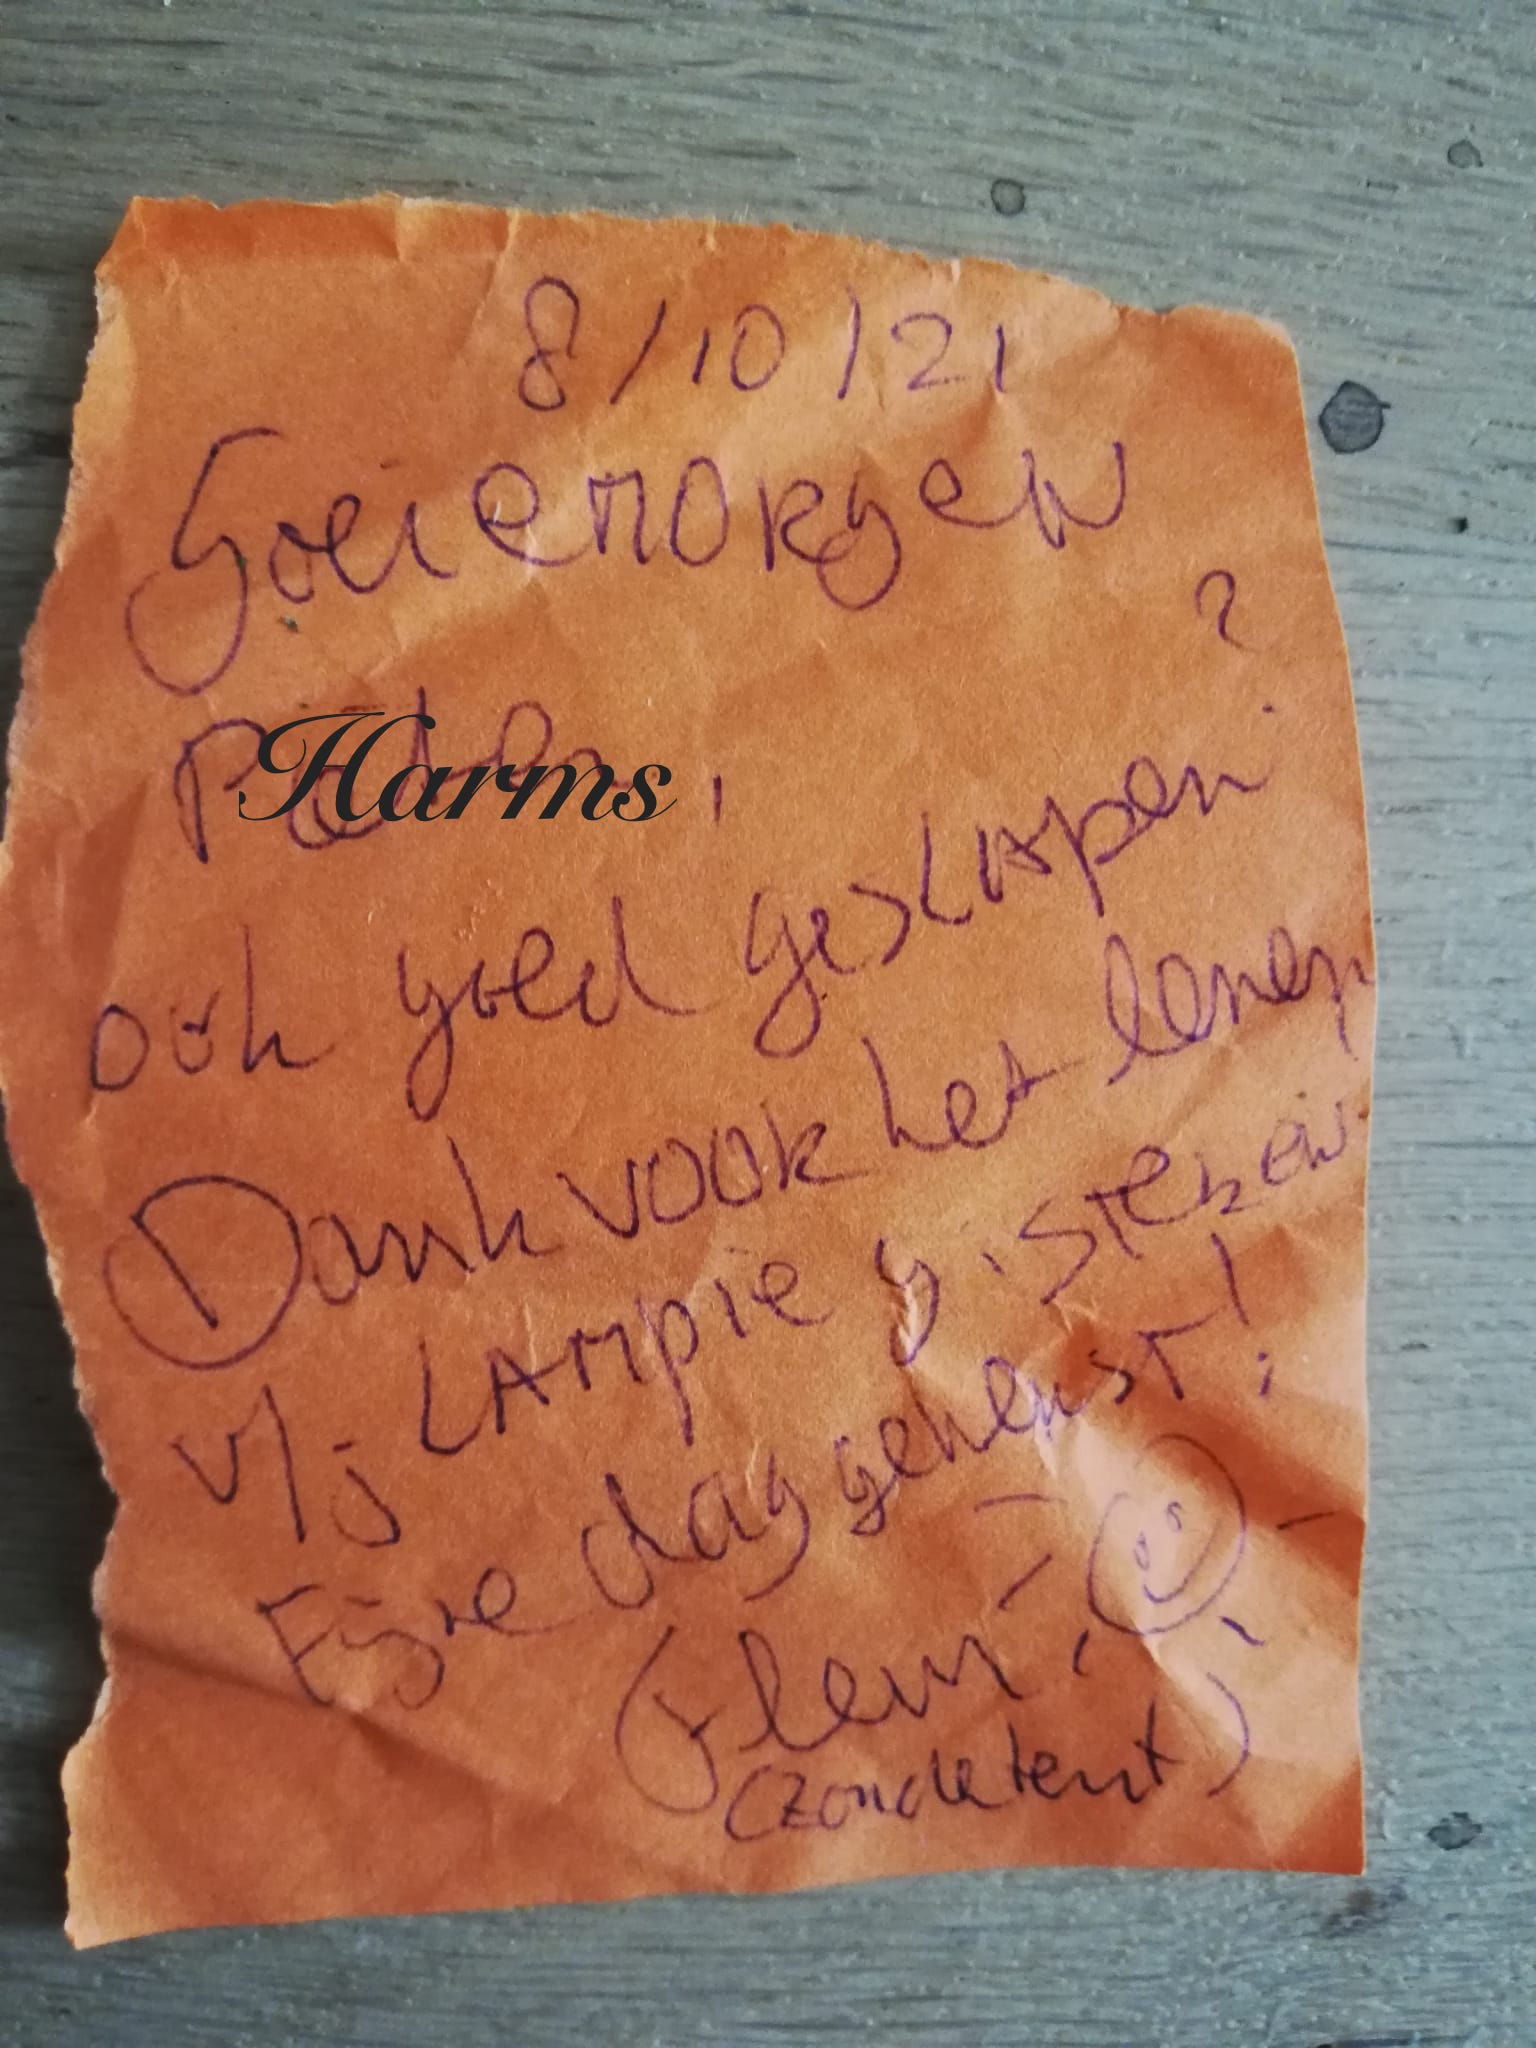 8/10/21
Goeiemorgen
Harms,
ook goed geslapen?
Dank voor het lenen
v/j lampie gisteren.
Fijne dag gewenst!
(zondetent)